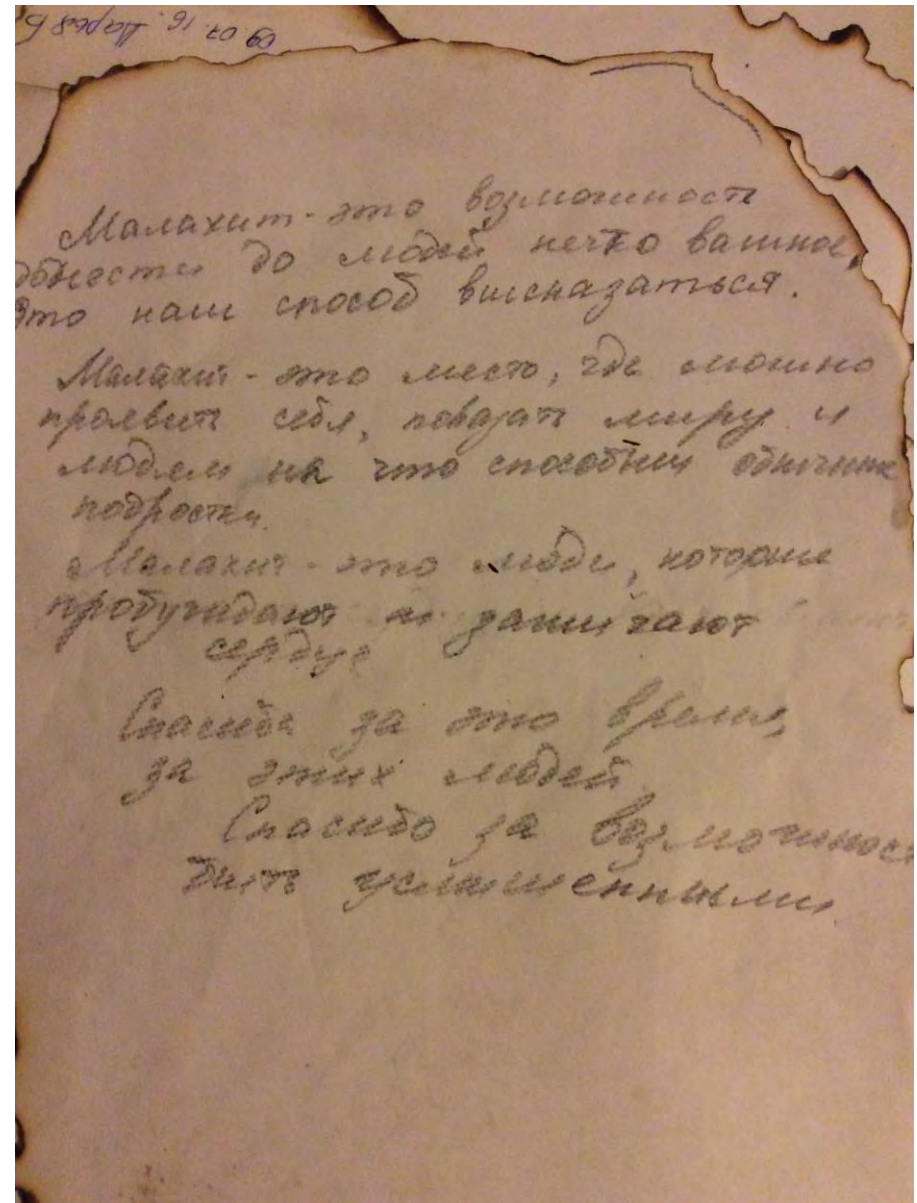 09.07.16. Дарья Б
Малахит - это возможность
донести до людей нечто важное,
Это наш способ высказаться.
Малахит - это место, где можно
проявить себя, показать миру и
людям на что способны обычные
подростки.
Малахит - это люди, которые
пробуждают и зажигают
сердца
Спасибо за это время,
за этих людей
Спасибо за возможност
быть услышенными